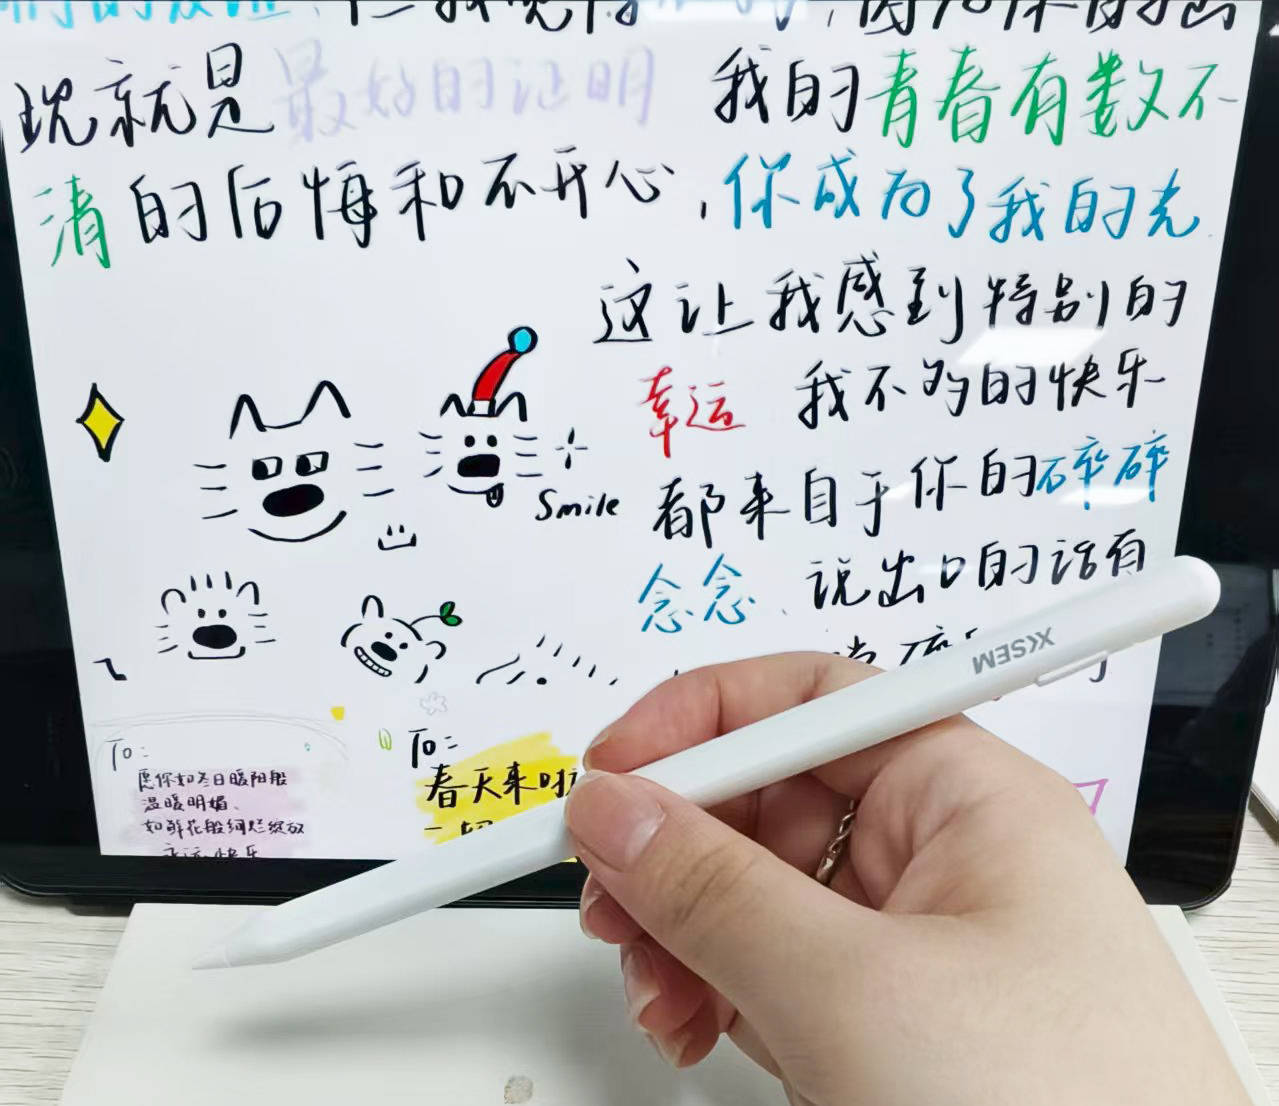 现就是最好的证明 我的青春有数不
清的后悔和不开心,你成为了我的光
这让我感到特别的
幸运 我不多的快乐
都来自于你的碎碎
念念、说出口的话有
Smile
To:
愿你如冬日暖阳般
温暖明媚、
如鲜花般绚烂绽放
永远快乐
To:
春天来啦
一切
XKSEM